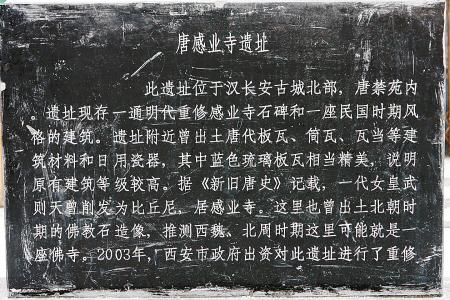 唐感业寺遗址
此遗址位于汉长安古城北部，唐禁苑内
。遗址现存一通明代重修感业寺石碑和一座民国时期风
格的建筑。遗址附近曾出土唐代板瓦、筒瓦、瓦当等建
筑材料和日用瓷器，其中蓝色琉璃板瓦相当精美，说明
原有建筑等级较高。据《新旧唐史》记载，一代女皇武
则天曾削发为比丘尼，居感业寺。这里也曾出土北朝时
期的佛教石造像，推测西魏、北周时期这里可能就是一
座佛寺。2003年，西安市政府出资对此遗址进行了重修